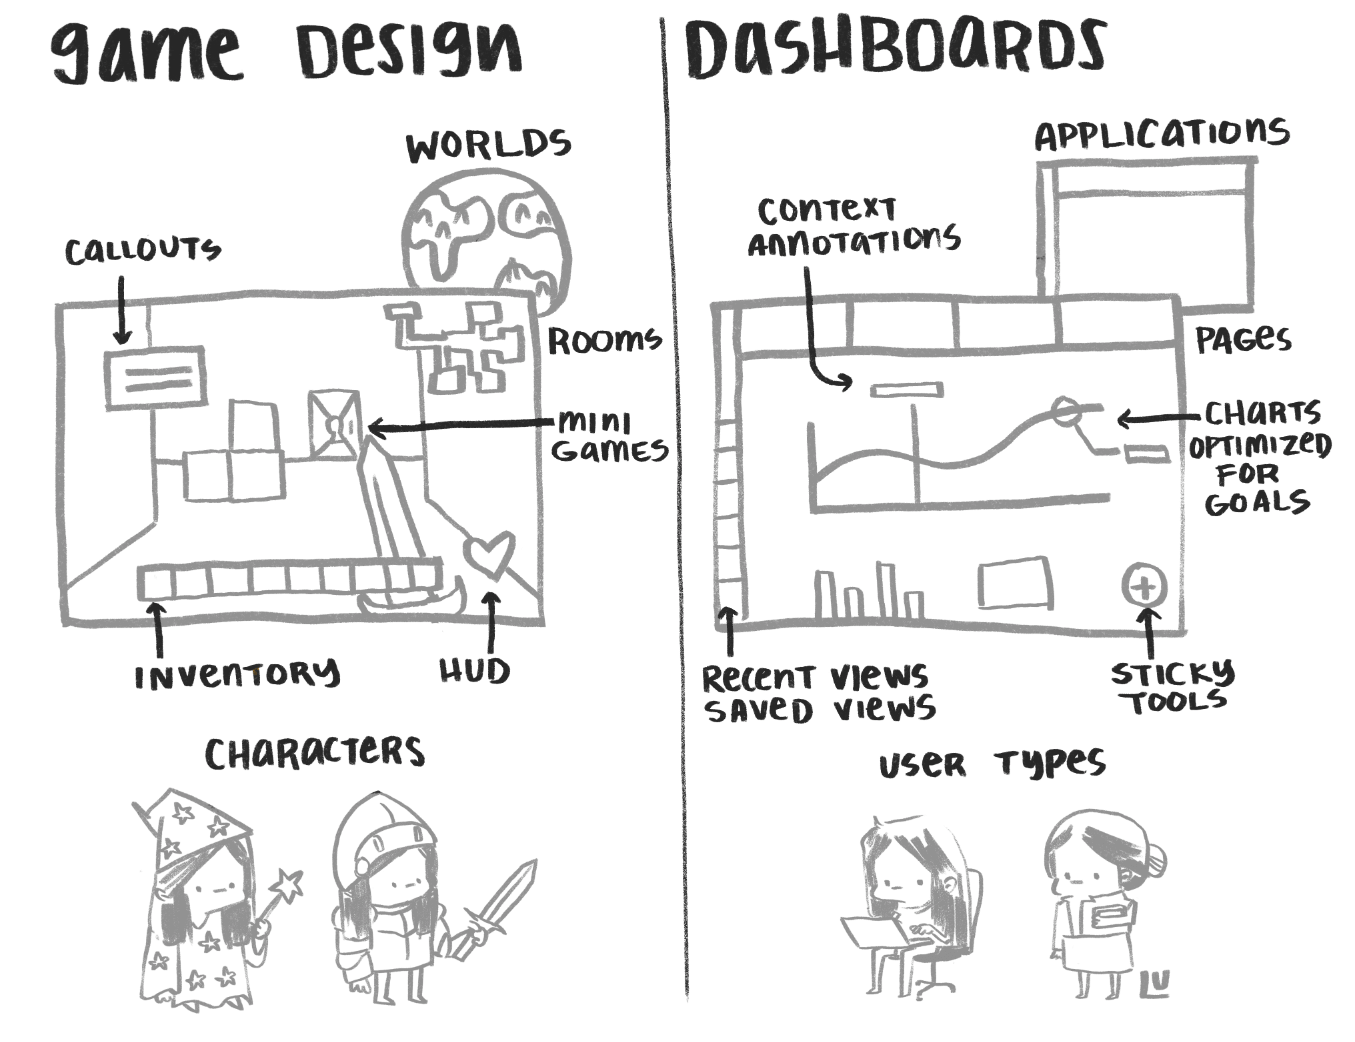 game Design
WORLDS
CALLOUTS
ROOMS
MINI
GAMES
INVENTORY
HUD
CHARACTERS
DASHBOARDS
APPLICATIONS
CONTEXT
ANNOTATIONS
PAGES
CHARTS
OPTIMIZED
FOR
GOALS
RECENT VIEWS
SAVED VIEWS
STICKY
TOOLS
USER TYPES
LU